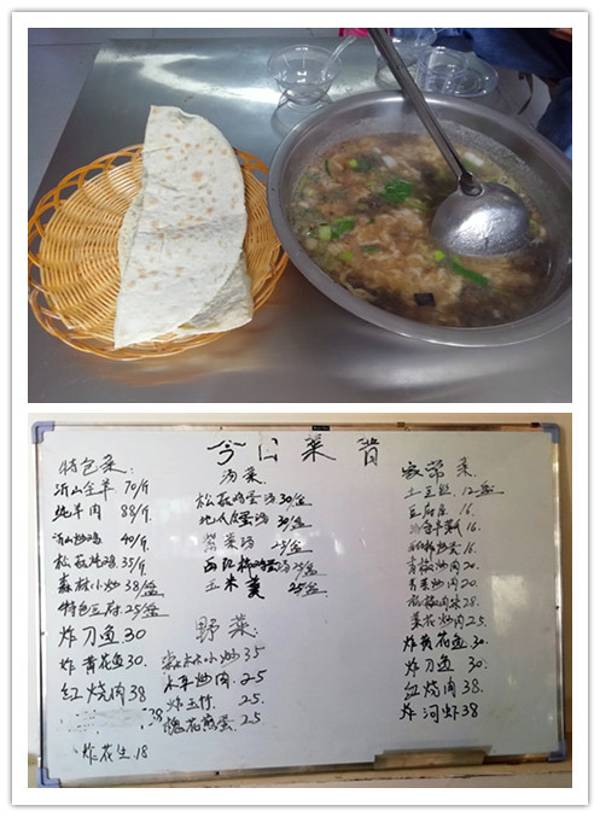 今日菜普
特色菜
沂山全羊 70/斤
炖羊肉 88/斤
沂山炒鸡 40/斤
松菇炖鸡 35/斤
森林小炒 38/盆
特色豆腐 25/盆
炸刀鱼 30
炸黄花鱼 30.
红烧肉 38
38
炸花生.18
汤菜.
松菇鸡蛋汤 30/盆
地瓜蛋汤 30/盆
紫菜汤 25/盆
西红柿鸡蛋汤 25/盆
玉米羹 25/盆
野菜.
森林小炒 35
木耳炒肉. 25
炸玉竹. 25.
槐花煎蛋. 25
家常菜.
土豆丝. 12盆
豆腐 16.
16.
炒蛋 16.
青椒炒肉 20.
青菜炒肉 20.
28.
菜花炒肉 25.
炸黄花鱼. 30.
炸刀鱼 30.
红烧肉 38.
炸河虾 38